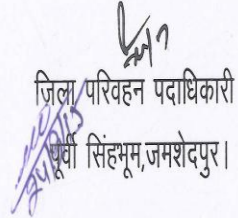 जिला परिवहन पदाधिकारी
पूर्वी सिंहभूम,जमशेदपुर।